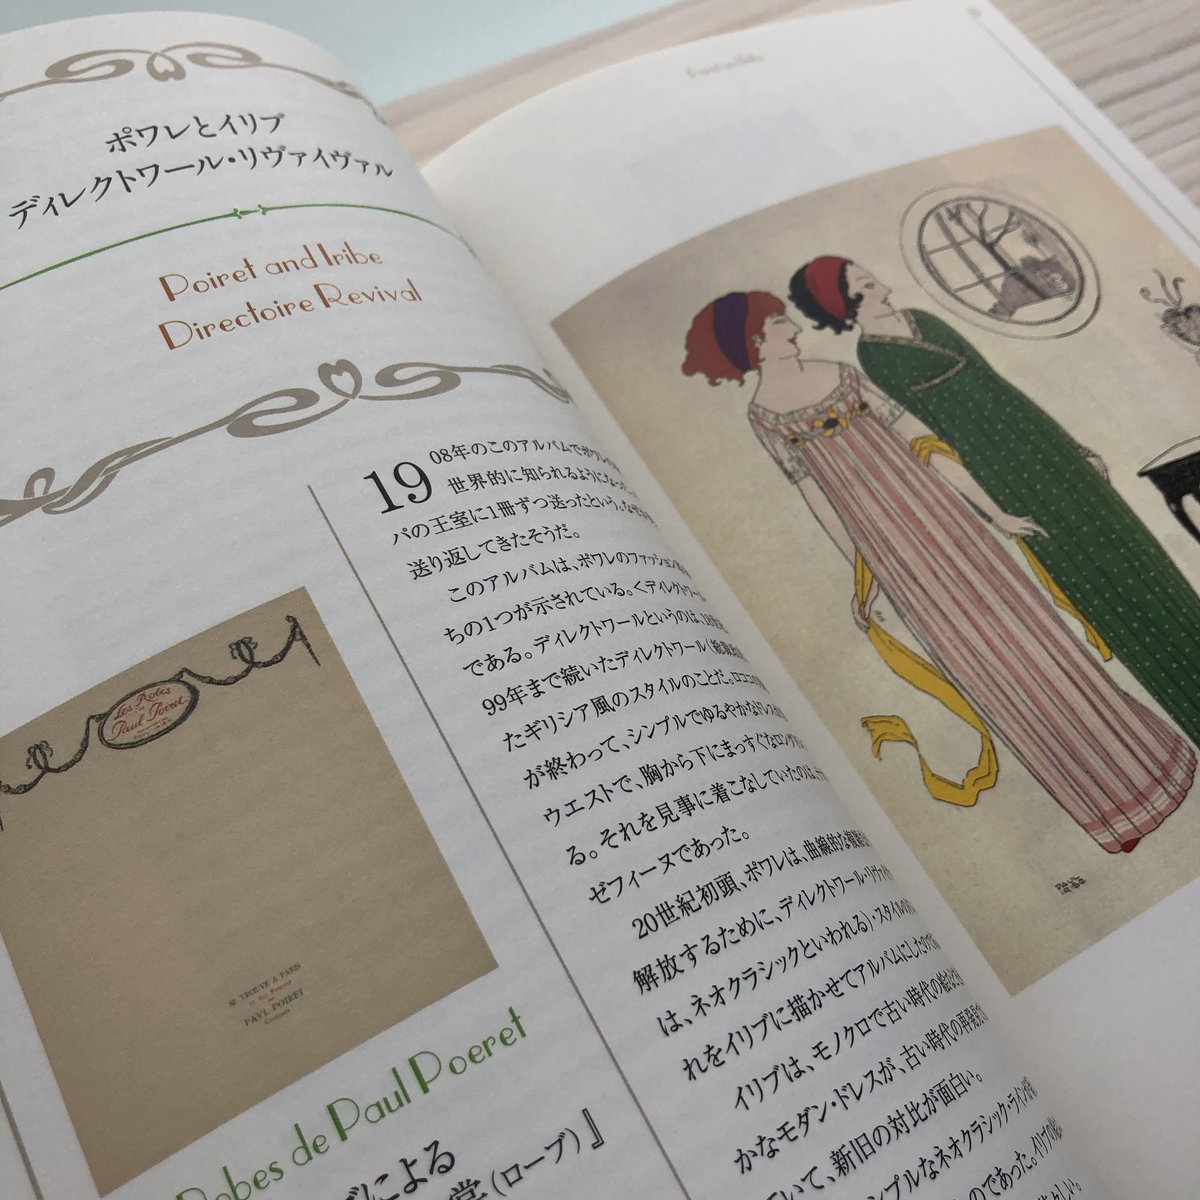 ポワレとイリブ
ディレクトワール・リヴァイヴァル
Poiret and Iribe
Directoire Revival
1908年のこのアルバムでポワレの
世界的に知られるようになった
パの王室に1冊ずつ送ったという。なぜか
送り返してきたそうだ。
このアルバムは、ポワレのファッション
ちの1つが示されている。<ディレクトワー
である。ディレクトワールというのは、
99年まで続いたディレクトワール(総裁
たギリシア風のスタイルのことだ。ロココ
が終わって、シンプルでゆるやかなドレス
ウエストで、胸から下にまっすぐなロング
る。それを見事に着こなしていたのは、
ゼフィーヌであった。
20世紀初頭、ポワレは、曲線的な
解放するために、ディレクトワール・リヴァイ
は、ネオクラシックといわれる)・スタイル
れをイリブに描かせてアルバムにしたので
イリブは、モノクロで古い時代の絵
かなモダン・ドレスが、古い時代の再
ていて、新旧の対比が面白い。
ンプルなネオクラシック・ライン
のであった。イリブの
Les Robes
de
Paul Poiret
SE TROUVE A PARIS
PAVL POIRET
Robes de Paul Poeret
による
(ローブ)』
PAUL